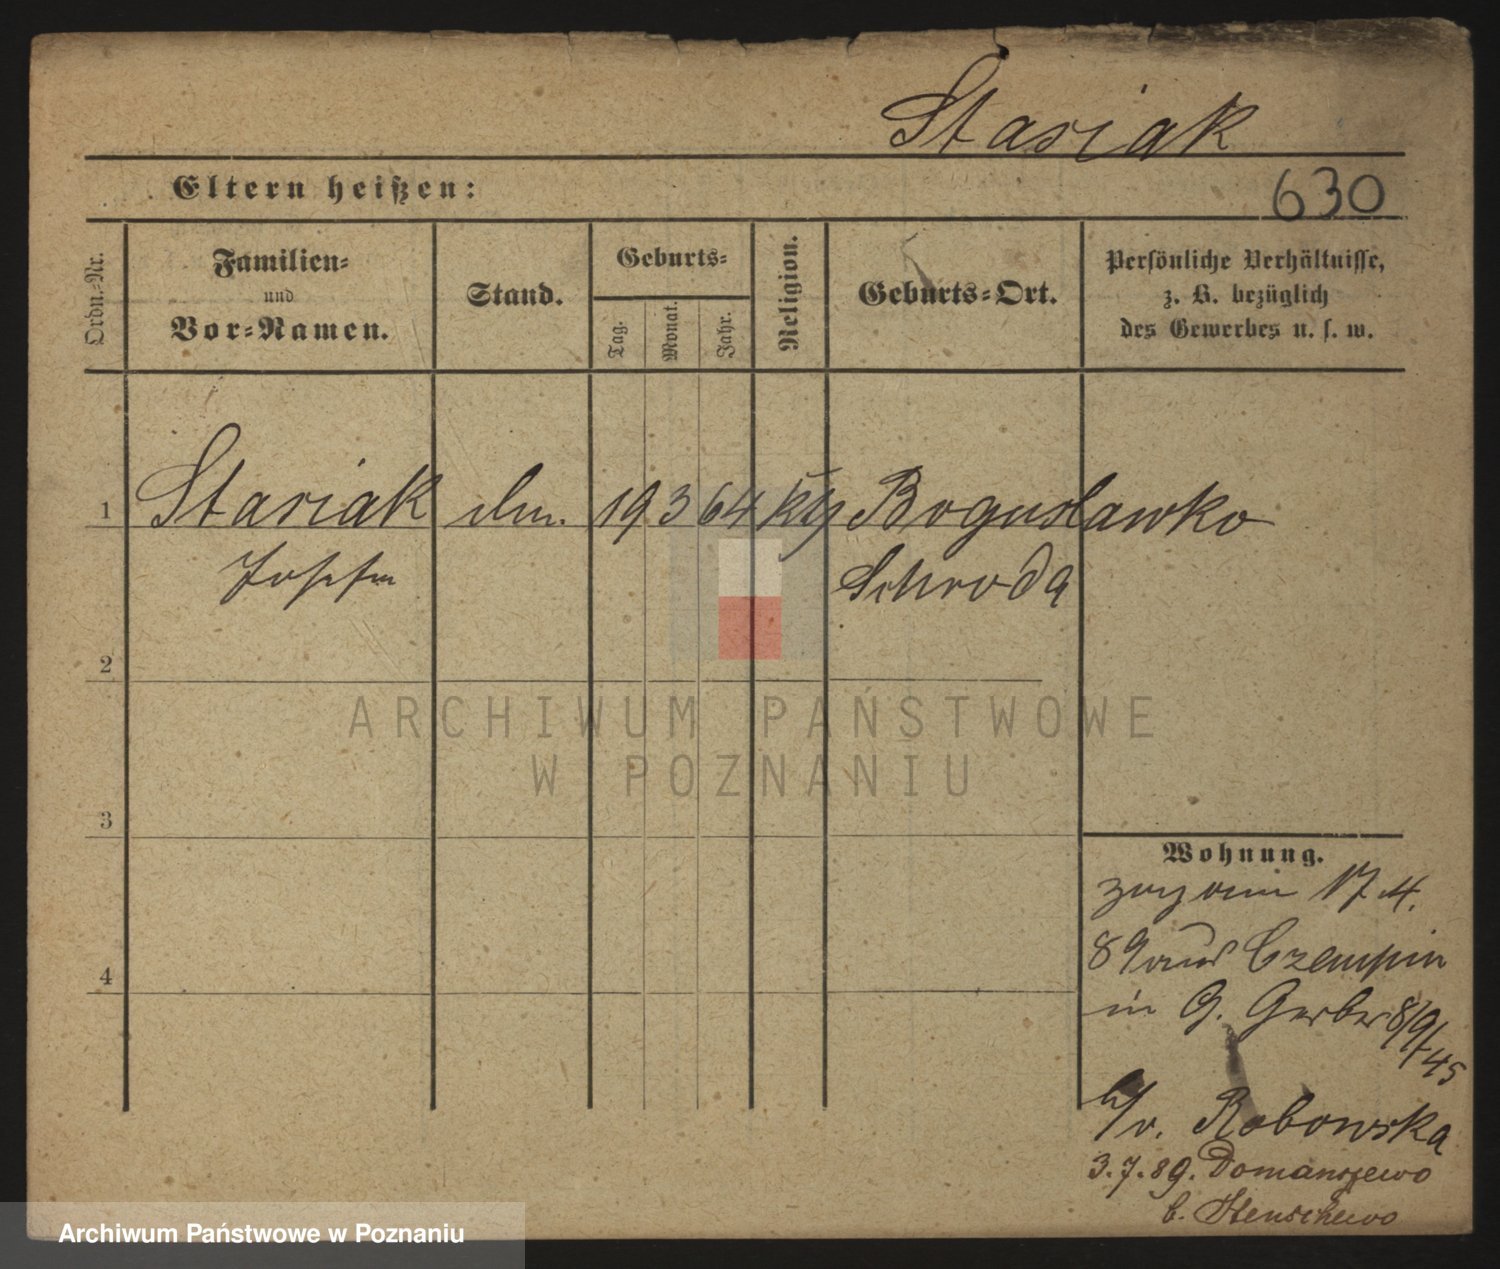 Stasiak
Eltern heißen:
630
Ordn.-Nr.
Familien-
und
Vor-Namen.
Stand.
Geburts-
Tag.
Monat.
Jahr.
Religion.
Geburts-Ort.
Persönliche Verhältnisse,
z. B. bezüglich
des Gewerbes u. s. w.
1 Stasiak 19 3 64 Boguslawko
Josefa Schroda
2
ARCHIWUM PAŃSTWOWE
W POZNANIU
3
4
Wohnung.
17 4.
89 aus Czempin
in G. Gerber 8/9/45
b/v. Robowska
3.7.89. Domanszewo
b.
Archiwum Państwowe w Poznaniu